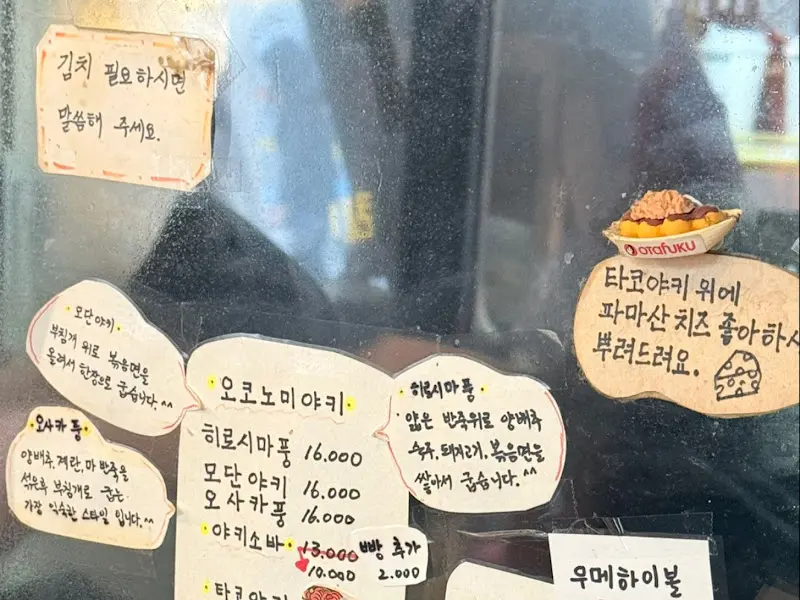 김치 필요하시면
말씀해 주세요.
OTAFUKU
타코야키 위에
파마산 치즈 좋아하시
뿌려드려요.
모단야키
부침개 위로 볶음면을
올려서 한장으로 굽습니다.^^
오사카풍
양배추, 계란, 마 반죽을
섞은후 부침개로 굽는
가장 익숙한 스타일 입니다.^^
오코노미야키
히로시마풍 16.000
모단야키 16.000
오사카풍 16.000
야키소바 13.000
10.000
빵 추가
2.000
히로시마풍
얇은 반죽위로 양배추
숙주, 돼지고기, 볶음면을
쌓아서 굽습니다.^^
우메하이볼